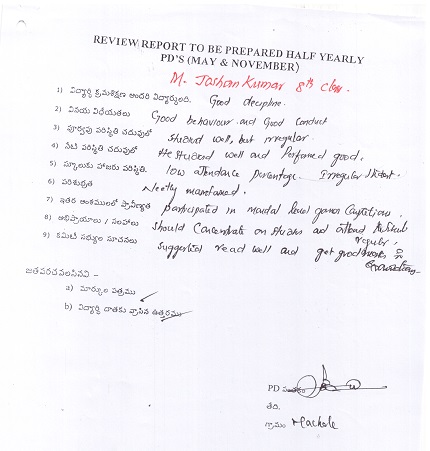 REVIEW REPORT TO BE PREPARED HALF YEARLY
PD'S (MAY & NOVEMBER)
M. Jashan Kumar 8th class.
1) విద్యార్థి క్రమశిక్షణ అందరి విద్యార్థులది. Good decipline.
2) వినయ విధేయతలు Good behaviour and Good Conduct
3) పూర్వపు పరిస్థితి చదువులో Studied well, but irregular.
4) నేటి పరిస్థితి చదువులో He studied well and Perfomed good.
5) స్కూలుకు హాజరు పరిస్థితి. low attendance percentage. Irregular student.
6) పరిశుభ్రత Neetly maintained.
7) ఇతర అంశములలో ప్రావీణ్యత participated in mandal level games
8) అభిప్రాయాలు / సలహాలు should Concentrate on studies and attend
regular,
9) కమిటీ సభ్యుల సూచనలు Suggested read well and get good marks in
జతపరచవలసినవి –
a) మార్కుల పత్రము
b) విద్యార్థి దాతకు వ్రాసిన ఉత్తరము
PD సంతకం
తేది.
గ్రామం